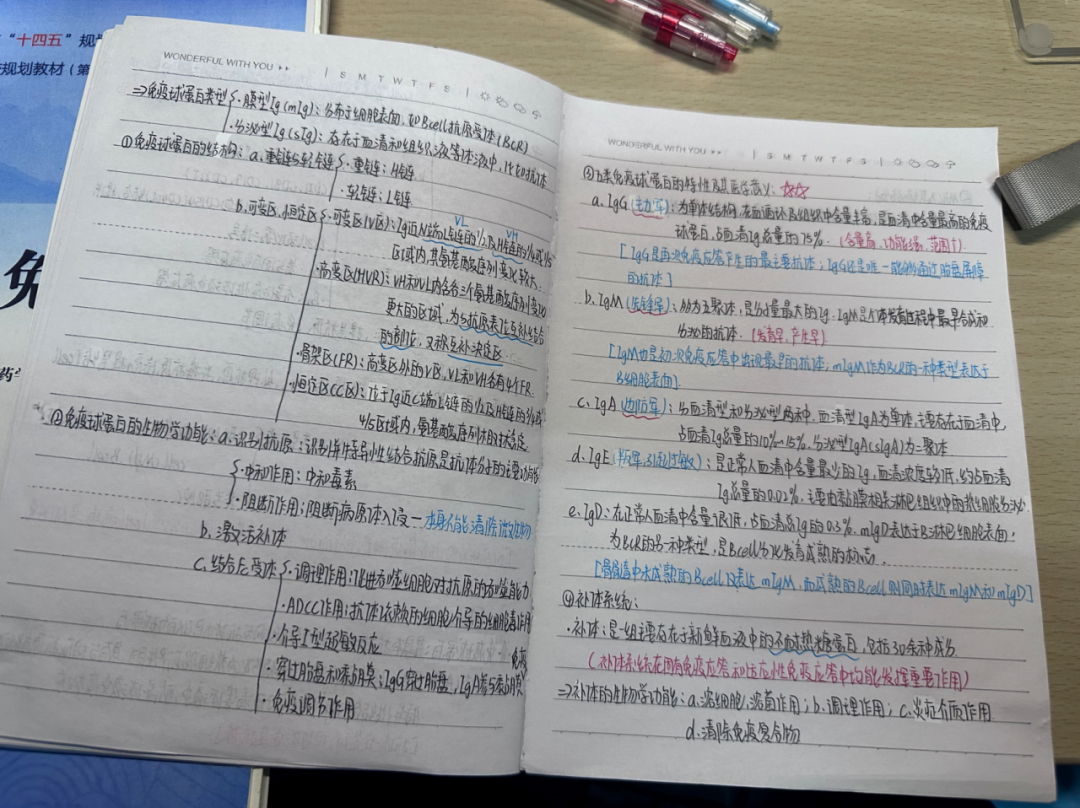 "十四五"规
规划教材（第
免
药
WONDERFUL WITH YOU
S M T W T F S
⇒免疫球蛋白类型{·膜型Ig(mIg)：分布于细胞表面，如Bcell抗原受体(BCR)
·分泌型Ig(sIg)：存在于血清和组织液等体液中，比如抗体
①免疫球蛋白的结构：a.重链与轻链{·重链：H链
·轻链：L链
b.可变区、恒定区{·可变区(V区)：Ig近N端L链的1/2及H链的1/4或1/5
VL
VH
区域内，其氨基酸序列变化较大.
·高变区(HVR)：VH和VL内各有三个氨基酸序列变化
更大的区域，为与抗原表位互补结合
的部位，又称互补决定区
·骨架区(FR)：高变区外的V区，VL和VH各有4个FR
·恒定区(C区)：位于Ig近C端L链的1/2及H链的3/4或
4/5区域内，氨基酸序列相对稳定.
②免疫球蛋白的生物学功能：a.识别抗原：识别并特异性结合抗原是抗体分子的主要功能
{·中和作用：中和毒素
·阻断作用：阻断病原体入侵—本身不能清除微生物
b.激活补体
c.结合Fc受体{·调理作用：促进吞噬细胞对抗原的吞噬能力
·ADCC作用：抗体依赖的细胞介导的细胞毒作用
·介导I型超敏反应
·穿过胎盘和黏膜：IgG穿过胎盘，IgA黏膜免疫
·免疫调节作用
WONDERFUL WITH YOU
S M T W T F S
③五类免疫球蛋白的特性及其医学意义：☆☆
a.IgG(主力军)：为单体结构，在血循环及组织中含量丰富，是血清中含量最高的免疫
球蛋白，占血清Ig总量的75%.(含量高、功能强、范围广)
[IgG是再次免疫应答产生的最主要抗体；IgG还是唯一能够通过胎盘屏障
的抗体]
b.IgM(先锋军)：为五聚体，是分子量最大的Ig.IgM是个体发育过程中最早合成和
分泌的抗体.(发育早,产生早)
[IgM也是初次免疫应答中出现最早的抗体；mIgM作为BCR的一种类型表达于
B细胞表面]
c.IgA(边防军)：分血清型和分泌型两种.血清型IgA为单体，主要存在于血清中，
占血清Ig总量的10%~15%.分泌型IgA(sIgA)为二聚体
d.IgE(叛军,引起过敏)：是正常人血清中含量最少的Ig，血清浓度较低，约占血清
Ig总量的0.02%，主要由黏膜相关淋巴组织中的浆细胞分泌.
e.IgD：在正常人血清中含量很低，占血清总Ig的0.3%.mIgD表达于B淋巴细胞表面，
为BCR的另一种类型，是Bcell分化发育成熟的标志.
[骨髓中未成熟的Bcell仅表达mIgM，而成熟的Bcell则同时表达mIgM和mIgD]
④补体系统：
·补体：是一组主要存在于新鲜血液中的不耐热糖蛋白，包括30余种成分
(补体系统在固有免疫应答和适应性免疫应答中均能发挥重要作用)
⇒补体的生物学功能：a.溶细胞，溶菌作用；b.调理作用；c.炎症介质作用
d.清除免疫复合物